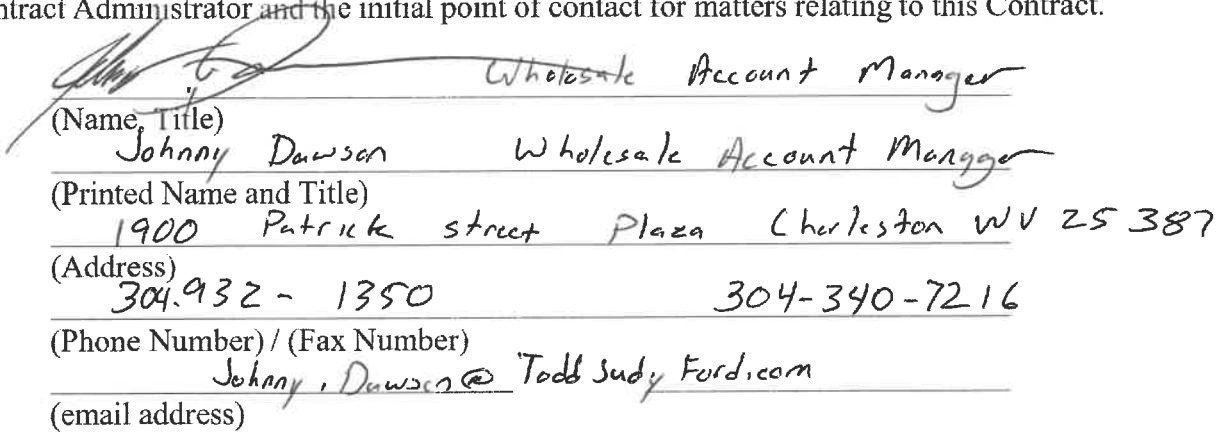 ntract Administrator and the initial point of contact for matters relating to this Contract.
Wholesale Account Manager
(Name, Title)
Johnny Dawson Wholesale Account Manager
(Printed Name and Title)
1900 Patrick street Plaza Charleston WV 25387
(Address)
304.932-1350 304-340-7216
(Phone Number) / (Fax Number)
Johnny.Dawson@ToddJudyFord.com
(email address)